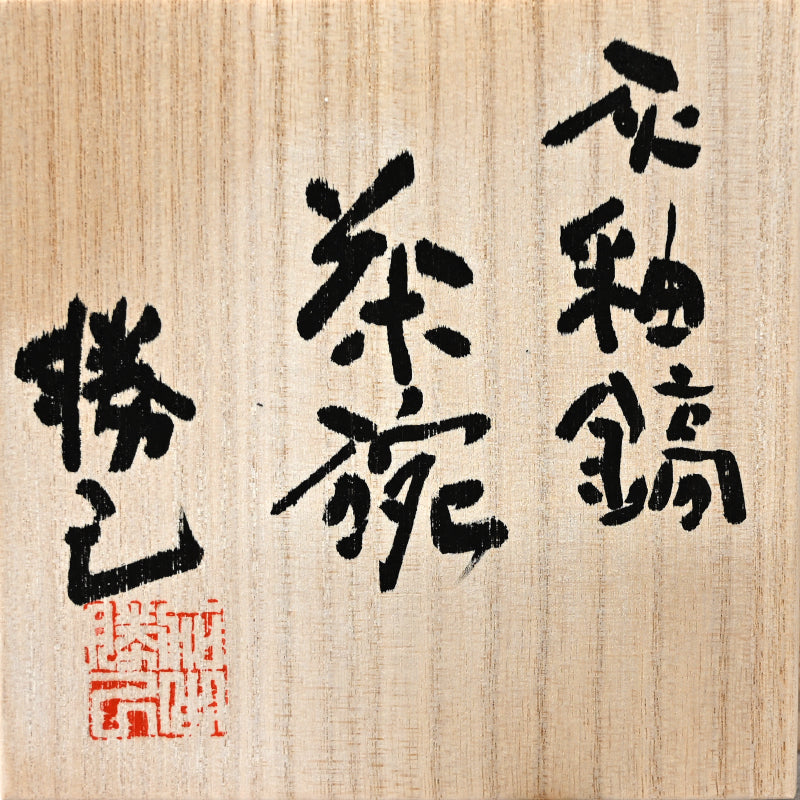 灰釉鎬
茶碗
勝己